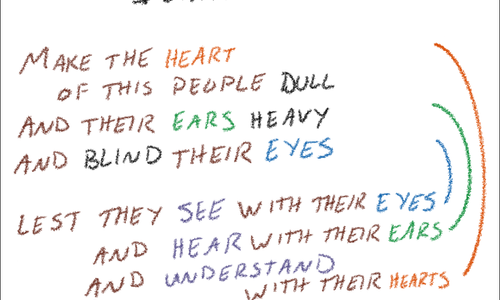 MAKE THE HEART
OF THIS PEOPLE DULL
AND THEIR EARS HEAVY
AND BLIND THEIR EYES
LEST THEY SEE WITH THEIR EYES
AND HEAR WITH THEIR EARS
AND UNDERSTAND
WITH THEIR HEARTS